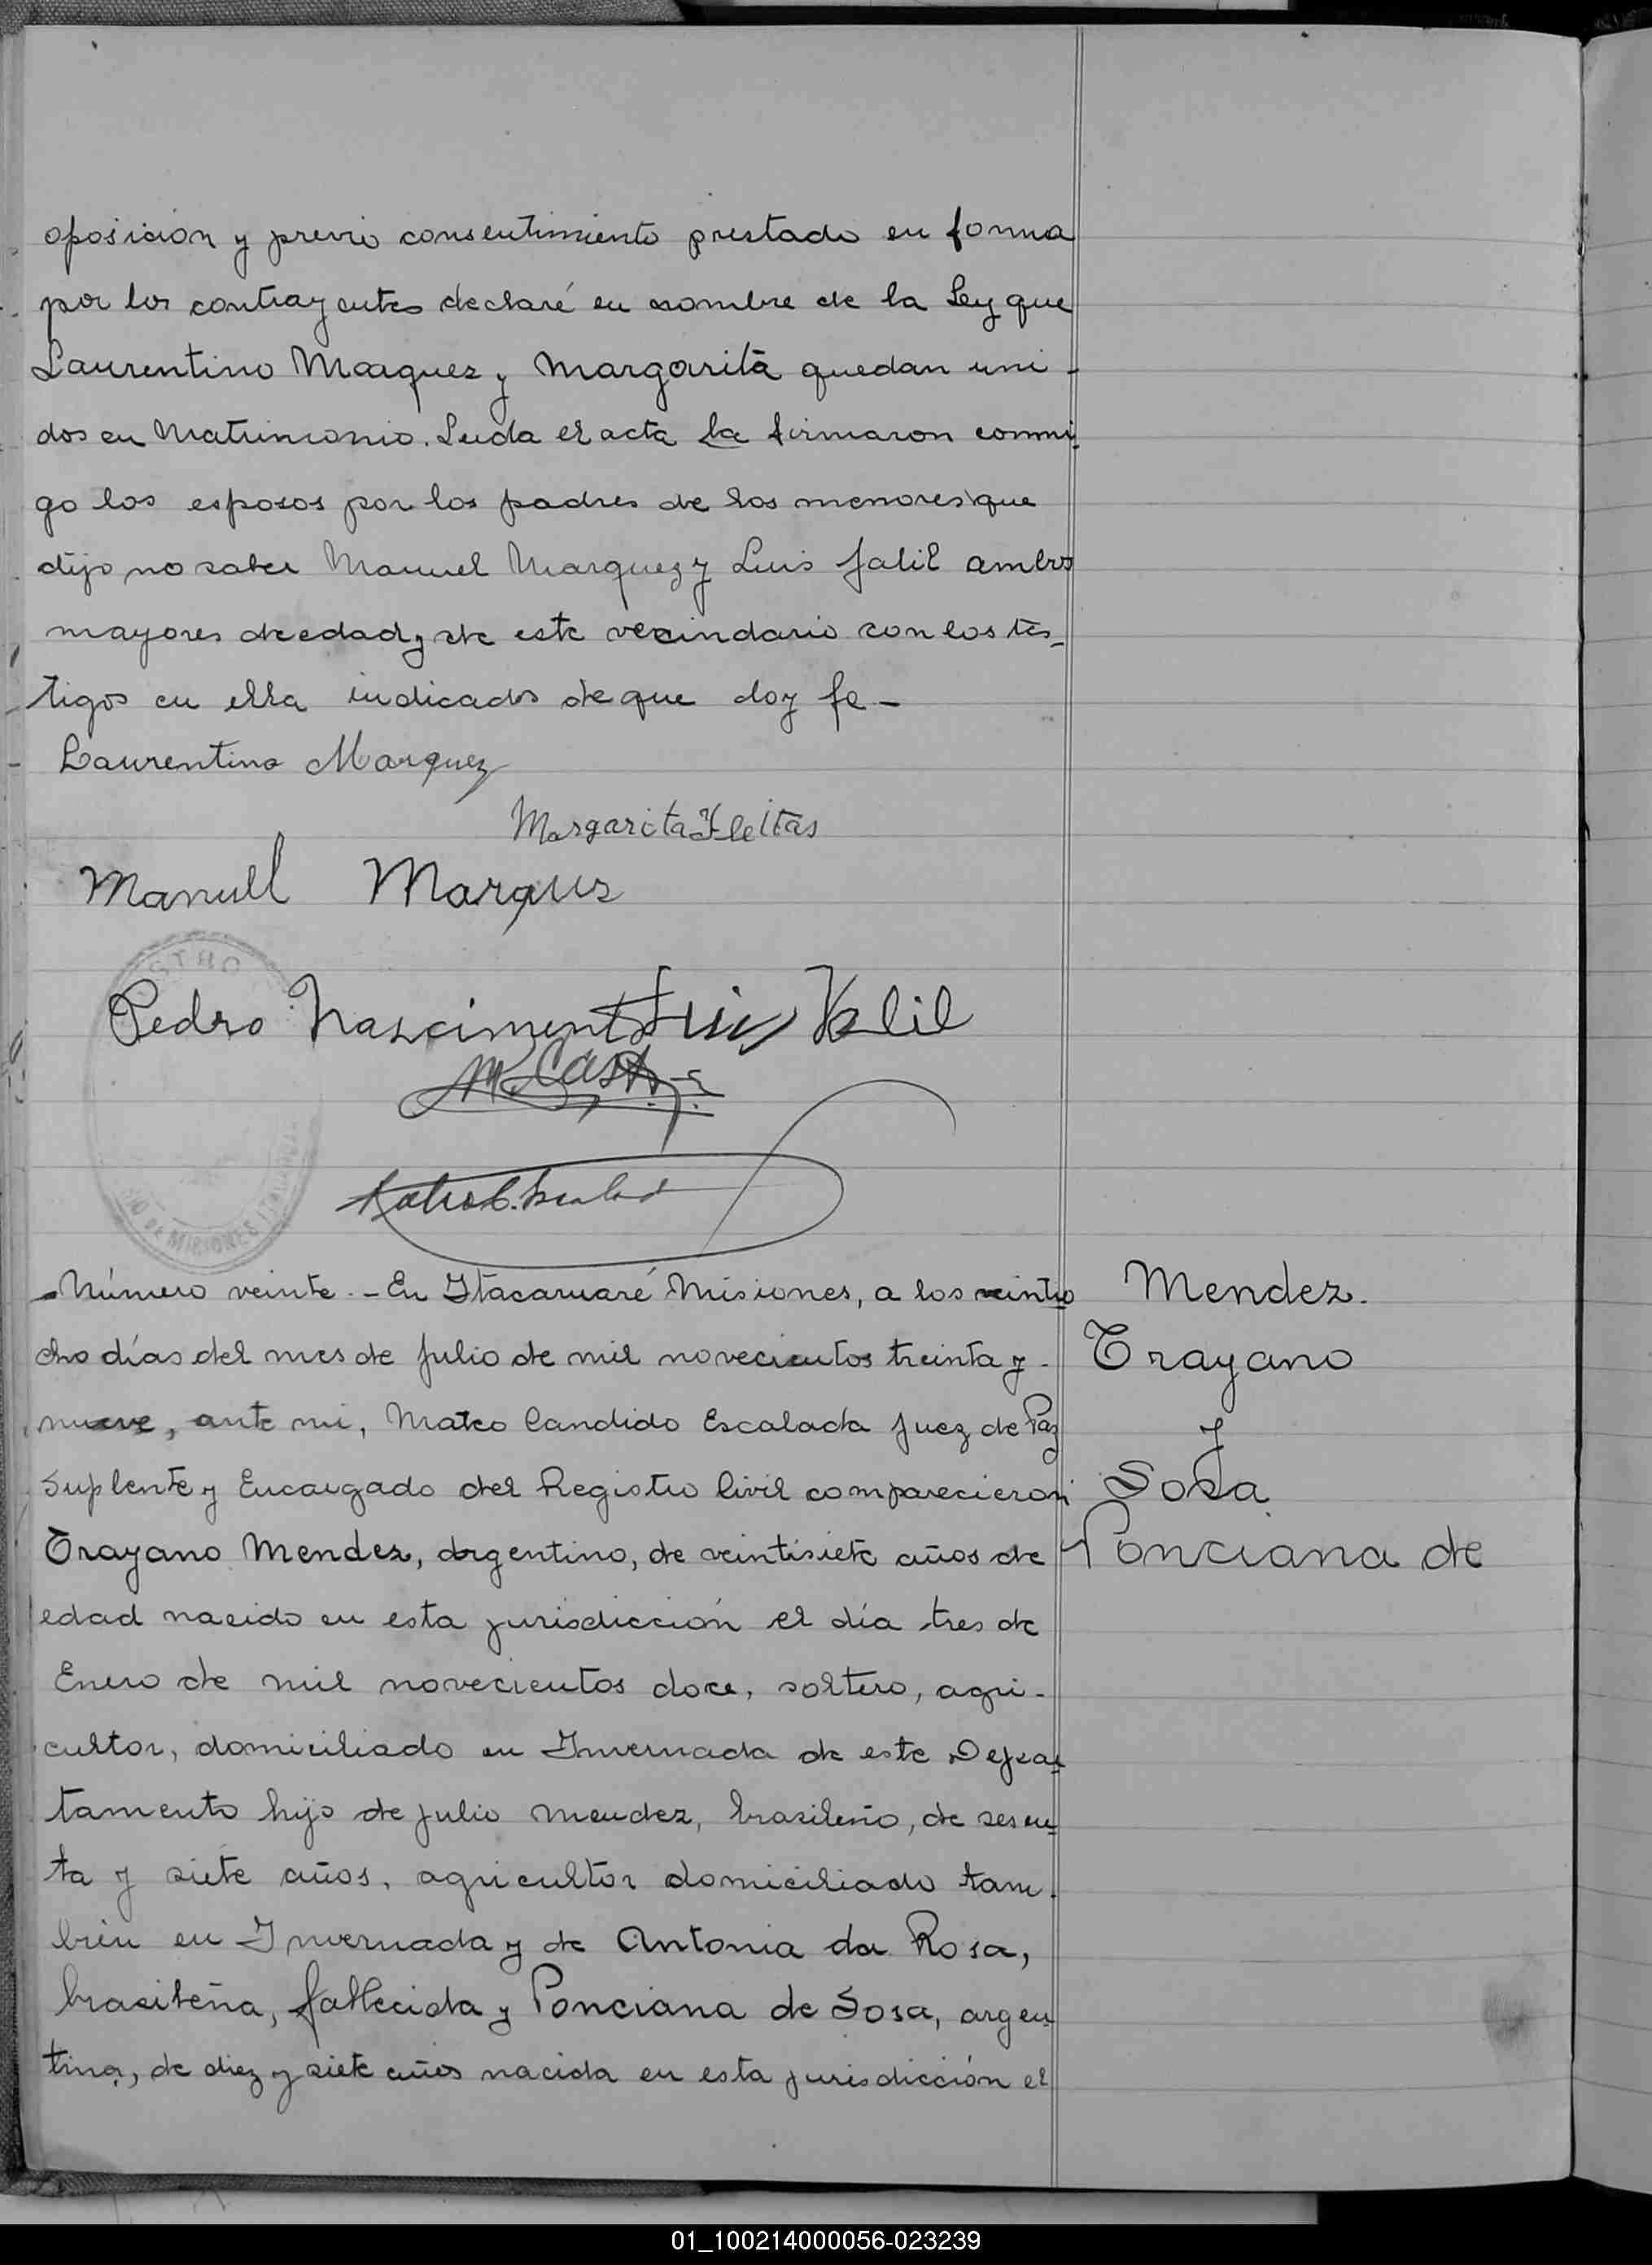 oposición y previo consentimiento prestado en forma
por los contrayentes declaré en nombre de la Ley que
Laurentino Marquez y Margarita quedan uni-
dos en Matrimonio. Leida el acta la firmaron conmi-
go los esposos por los padres de los menores que
dijo no saber Manuel Marquez y Luis Jalil ambos
mayores de edad y de este vecindario con los tes-
tigos en ella indicados de que doy fe -
Laurentino Marquez
Margarita Fleitas
Manuel Marques
Pedro Nascimento Luis Kalil
STRO
M. Cast
IO DE MISIONES
Número veinte. - En Itacaruaré Misiones, a los veintio
cho días del mes de Julio de mil novecientos treinta y -
nueve, ante mi, Mateo Candido Escalada Juez de Paz
Suplente y Encargado del Registro Civil comparecieron
Trayano Mendez, argentino, de veintisiete años de
edad nacido en esta jurisdicción el día tres de
Enero de mil novecientos doce, soltero, agri-
cultor, domiciliado en Invernada de este Depar
tamento hijo de Julio Mendez, brasileño, de sesen
ta y siete años, agricultor domiciliado tam-
bien en Invernada y de Antonia da Rosa,
brasileña, fallecida y Ponciana de Sosa, argen
tina, de diez y siete años nacida en esta jurisdicción el
Mendez.
Trayano
y
Sosa
Ponciana de
01_100214000056-023239